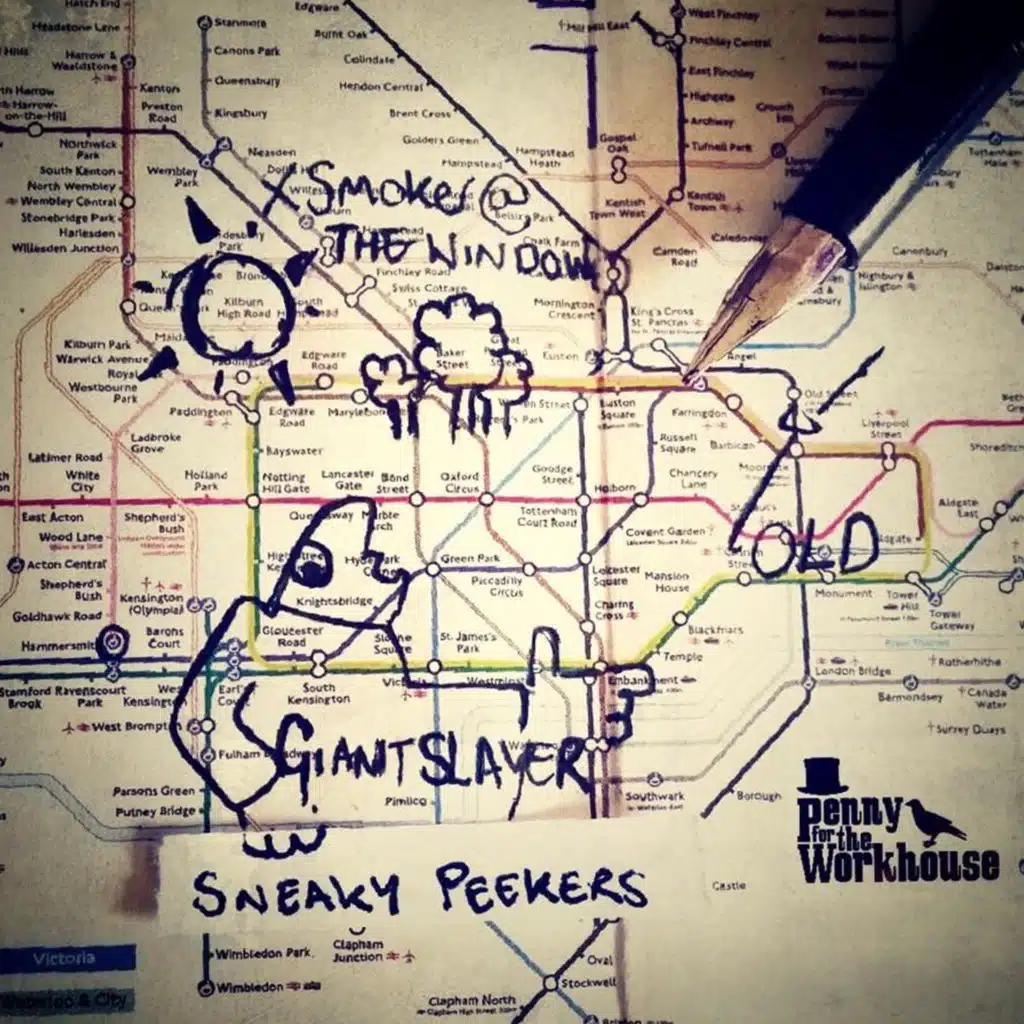 Hatch End
Headstone Lane
Harrow & Wealdstone
Kenton
Preston Road
Northwick Park
South Kenton
North Wembley
Wembley Central
Stonebridge Park
Harlesden
Willesden Junction
Stanmore
Canons Park
Queensbury
Kingsbury
Neasden
Wembley Park
Edgware
Burnt Oak
Colindale
Hendon Central
Brent Cross
Golders Green
Hampstead
Hampstead Heath
Mill Hill East
West Finchley
Finchley Central
East Finchley
Highgate
Archway
Tufnell Park
Crouch Hill
Gospel Oak
Kentish Town West
Kentish Town
X SMOKE @
Belsize Park
THE WINDOW
Chalk Farm
Camden Road
Caledonian
Canonbury
Highbury & Islington
Finchley Road
Swiss Cottage
Kilburn High Road
Mornington Crescent
King's Cross St. Pancras
Kilburn Park
Warwick Avenue
Royal
Westbourne Park
Maida
Paddington
Edgware Road
Baker Street
Great
Euston
Angel
Old Street
Paddington
Edgware Road
Marylebone
Euston Square
Farringdon
Barbican
Liverpool Street
Shoreditch
Ladbroke Grove
Bayswater
Russell Square
Moorgate
Latimer Road
White City
Holland Park
Notting Hill Gate
Lancaster Gate
Bond Street
Oxford Circus
Goodge Street
Holborn
Chancery Lane
Aldgate East
East Acton
Wood Lane
Shepherd's Bush
Queensway
Marble Arch
Tottenham Court Road
Covent Garden
OLD
Aldgate
Acton Central
Shepherd's Bush
Kensington (Olympia)
Hyde Park
Green Park
Piccadilly Circus
Leicester Square
Mansion House
Monument
Tower Hill
Tower Gateway
Goldhawk Road
Hammersmith
Barons Court
Knightsbridge
Gloucester Road
Sloane Square
St. James's Park
Charing Cross
Blackfriars
Temple
London Bridge
Rotherhithe
Stamford Brook
Ravenscourt Park
West Kensington
Earl's Court
South Kensington
Victoria
Westminster
Embankment
Bermondsey
Canada Water
West Brompton
Surrey Quays
Fulham Broadway
GIANTSLAYER
Parsons Green
Putney Bridge
Pimlico
Southwark
Borough
penny
for the
Workhouse
SNEAKY PEEKERS
Castle
Victoria
Waterloo & City
Wimbledon Park
Wimbledon
Clapham Junction
Oval
Stockwell
Clapham North